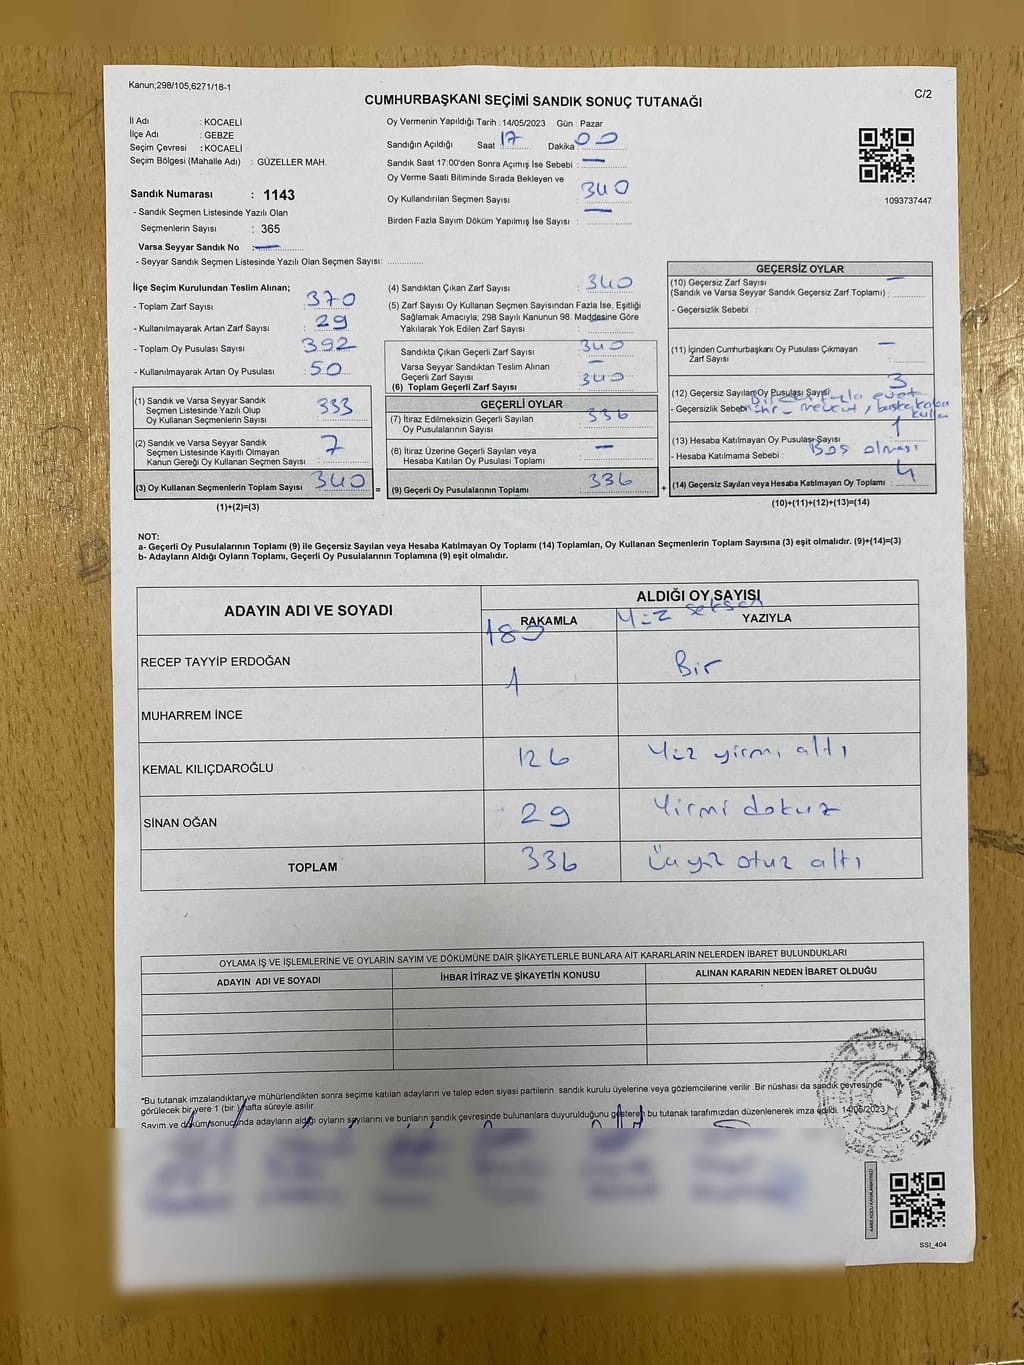 Kanun;298/105,6271/18-1
C/2
CUMHURBAŞKANI SEÇİMİ SANDIK SONUÇ TUTANAĞI
İl Adı : KOCAELİ
İlçe Adı : GEBZE
Seçim Çevresi : KOCAELİ
Seçim Bölgesi (Mahalle Adı) : GÜZELLER MAH.
Sandık Numarası : 1143
- Sandık Seçmen Listesinde Yazılı Olan
Seçmenlerin Sayısı : 365
Varsa Seyyar Sandık No : —
- Seyyar Sandık Seçmen Listesinde Yazılı Olan Seçmen Sayısı: ..............
Oy Vermenin Yapıldığı Tarih : 14/05/2023 Gün : Pazar
Sandığın Açıldığı Saat 17 Dakika 00
Sandık Saat 17:00'den Sonra Açımış İse Sebebi : —
Oy Verme Saati Bitiminde Sırada Bekleyen ve
Oy Kullandırılan Seçmen Sayısı : 340
Birden Fazla Sayım Döküm Yapılmış İse Sayısı : —
1093737447
İlçe Seçim Kurulundan Teslim Alınan;
- Toplam Zarf Sayısı : 370
- Kullanılmayarak Artan Zarf Sayısı : 29
- Toplam Oy Pusulası Sayısı : 392
- Kullanılmayarak Artan Oy Pusulası : 50
(1) Sandık ve Varsa Seyyar Sandık
Seçmen Listesinde Yazılı Olup
Oy Kullanan Seçmenlerin Sayısı : 333
(2) Sandık ve Varsa Seyyar Sandık
Seçmen Listesinde Kayıtlı Olmayan
Kanun Gereği Oy Kullanan Seçmen Sayısı : 7
(3) Oy Kullanan Seçmenlerin Toplam Sayısı : 340
(1)+(2)=(3)
=
(4) Sandıktan Çıkan Zarf Sayısı : 340
(5) Zarf Sayısı Oy Kullanan Seçmen Sayısından Fazla İse, Eşitliği
Sağlamak Amacıyla; 298 Sayılı Kanunun 98. Maddesine Göre
Yakılarak Yok Edilen Zarf Sayısı : —
Sandıkta Çıkan Geçerli Zarf Sayısı : 340
Varsa Seyyar Sandıktan Teslim Alınan
Geçerli Zarf Sayısı : —
(6) Toplam Geçerli Zarf Sayısı : 340
GEÇERLİ OYLAR
(7) İtiraz Edilmeksizin Geçerli Sayılan
Oy Pusulalarının Sayısı : 336
(8) İtiraz Üzerine Geçerli Sayılan veya
Hesaba Katılan Oy Pusulası Toplamı : —
(9) Geçerli Oy Pusulalarının Toplamı : 336
+
GEÇERSİZ OYLAR
(10) Geçersiz Zarf Sayısı —
(Sandık ve Varsa Seyyar Sandık Geçersiz Zarf Toplamı) :
- Geçersizlik Sebebi :
(11) İçinden Cumhurbaşkanı Oy Pusulası Çıkmayan —
Zarf Sayısı :
(12) Geçersiz Sayılan Oy Pusulası Sayısı 3
- Geçersizlik Sebebi : Birden fazla evet
mühr mevcut, başka kaba
kulla
(13) Hesaba Katılmayan Oy Pusulası Sayısı 1
- Hesaba Katılmama Sebebi : Boş olması
(14) Geçersiz Sayılan veya Hesaba Katılmayan Oy Toplamı : 4
(10)+(11)+(12)+(13)=(14)
NOT:
a- Geçerli Oy Pusulalarının Toplamı (9) ile Geçersiz Sayılan veya Hesaba Katılmayan Oy Toplamı (14) Toplamları, Oy Kullanan Seçmenlerin Toplam Sayısına (3) eşit olmalıdır. (9)+(14)=(3)
b- Adayların Aldığı Oyların Toplamı, Geçerli Oy Pusulalarının Toplamına (9) eşit olmalıdır.
ADAYIN ADI VE SOYADI
ALDIĞI OY SAYISI
RAKAMLA YAZIYLA
RECEP TAYYİP ERDOĞAN 180 Yüz seksen
MUHARREM İNCE 1 Bir
KEMAL KILIÇDAROĞLU 126 Yüz yirmi altı
SİNAN OĞAN 29 Yirmi dokuz
TOPLAM 336 Üç yüz otuz altı
OYLAMA İŞ VE İŞLEMLERİNE VE OYLARIN SAYIM VE DÖKÜMÜNE DAİR ŞİKAYETLERLE BUNLARA AİT KARARLARIN NELERDEN İBARET BULUNDUKLARI
ADAYIN ADI VE SOYADI İHBAR İTİRAZ VE ŞİKAYETİN KONUSU ALINAN KARARIN NEDEN İBARET OLDUĞU
*Bu tutanak imzalandıktan ve mühürlendikten sonra seçime katılan adayların ve talep eden siyasi partilerin sandık kurulu üyelerine veya gözlemcilerine verilir. Bir nüshası da sandık çevresinde
görülecek bir yere 1 (bir) hafta süreyle asılır.
Sayım ve döküm sonucunda adayların aldığı oyların sayılarını ve bunların sandık çevresinde bulunanlara duyurulduğunu gösteren bu tutanak tarafımızdan düzenlenerek imza edildi. 14/05/2023
SSI_404